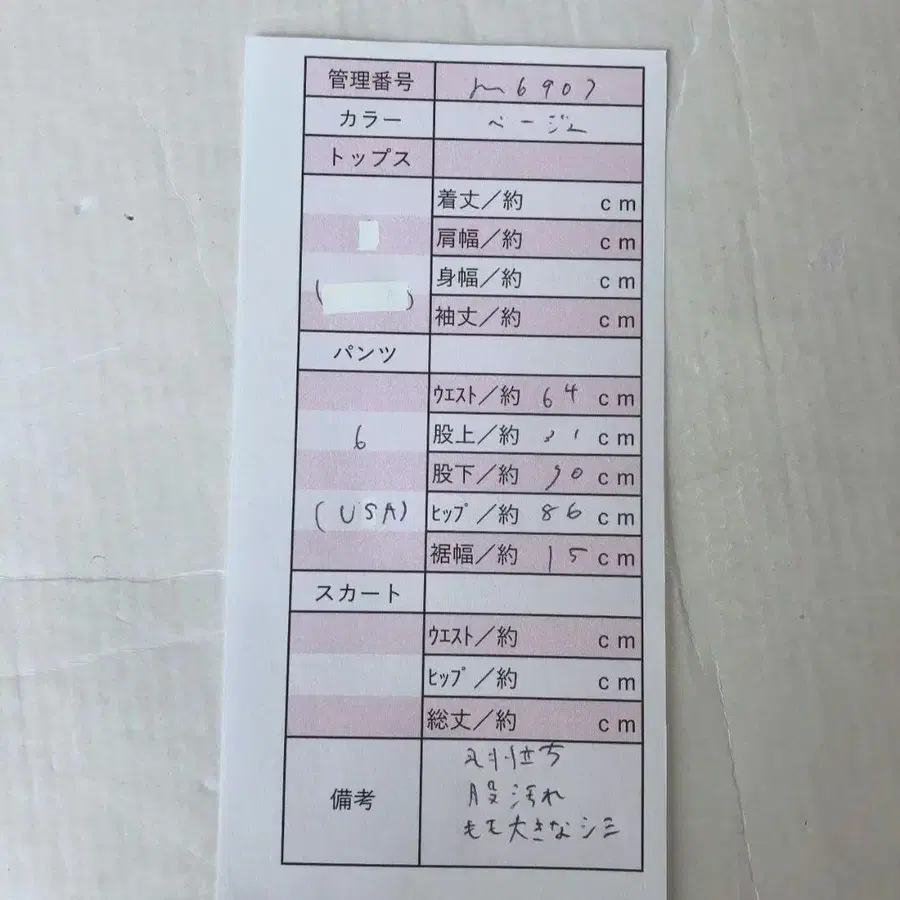 管理番号 m6907
カラー ベージュ
トップス
着丈／約 cm
肩幅／約 cm
( ) 身幅／約 cm
袖丈／約 cm
パンツ
ウエスト／約 64 cm
6 股上／約 31 cm
股下／約 90 cm
(USA) ヒップ／約 86 cm
裾幅／約 15 cm
スカート
ウエスト／約 cm
ヒップ／約 cm
総丈／約 cm
毛羽立ち
備考 股汚れ
もも大きなシミ